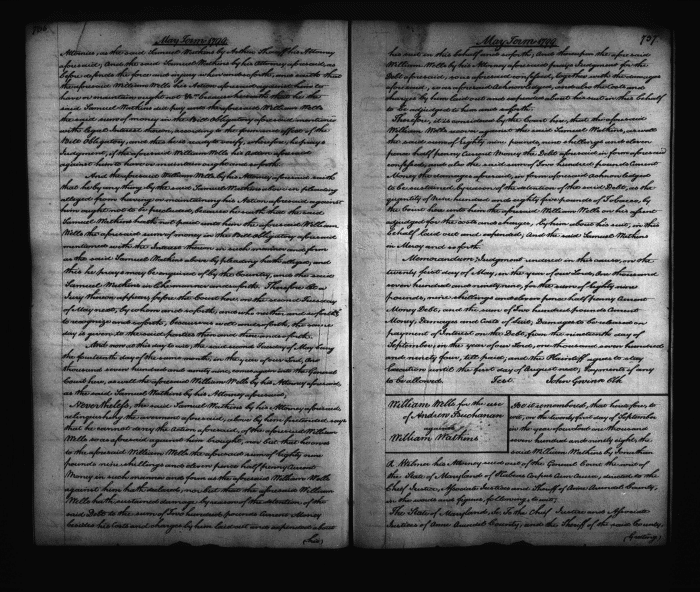 May Term 1799
Attornies, as the said Samuel Wathins by Arthur Shaaff his Attorney
aforesaid, And the said Samuel Wathins by his attorney aforesaid, as
before defends the force and injury when and so forth, and saith that
the aforesaid William Wells his Action aforesaid against him to
have or maintain ought not &c because he saith that he the
said Samuel Wathins did pay unto the aforesaid William Wells
the said sum of money in the Bill Obligatory aforesaid mentioned
with legal Interest thereon, according to the form and effect of the
Bill Obligatory, and this he is ready to verify, wherefore, he prays
Judgment, if the aforesaid William Wells his Action aforesaid
against him to have or maintain ought and so forth.
And the aforesaid William Wells by his Attorney aforesaid saith
that he by any thing by the said Samuel Wathins above in pleading
alledged from having or maintaining his Action aforesaid against
him ought not to be precluded, because he saith that the said
Samuel Wathins hath not paid unto him the aforesaid William
Wells the aforesaid sum of money in the Bill obligatory aforesaid
mentioned with the Interest thereon in such manner and form
as the said Samuel Wathins above by pleading hath alledged, and
this he prays may be enquired of by the Country, and the said
Samuel Wathins in like manner and so forth. Therefore let a
Jury thereon appear, before the Court here on the second Tuesday
of May next, by whom and so forth, and who neither and so forth
to recognize and so forth, because as well and so forth, the same
day is given to the said parties then and there and so forth.
And now at this day to wit, the said second Tuesday of May being
the fourteenth day of the same month, in the year of our Lord, One
thousand seven hundred and ninety nine, come again into the General
Court here, as well the aforesaid William Wells by his Attorney aforesaid,
as the said Samuel Wathins by his Attorney aforesaid,
Nevertheless, the said Samuel Wathins by his Attorney aforesaid,
relinquishing the averment aforesaid, above by him pretended, says
that he cannot deny the Action aforesaid, of the aforesaid William
Wells so as aforesaid against him brought, nor but that he owes
to the aforesaid William Wells the aforesaid sum of Eighty nine
pounds nine shillings and eleven pence half penny Current
Money in such manner and form as the aforesaid William Wells
against him hath declared, nor, but that the aforesaid William
Wells hath sustained damages by reason of the detention of the
said Debt to the sum of Two hundred pounds Current Money
besides his Costs and charges by him laid out and expended about
(his)
May Term 1799
757
his suit in this behalf and so forth, And thereupon the aforesaid
William Wells by his Attorney aforesaid prays Judgment for the
Debt aforesaid, so as aforesaid confessed, together with the damages
aforesaid, so as aforesaid Acknowledged, and also the Costs and
charges by him laid out and expended about his suit in this behalf
to be adjudged to him and so forth.
Therefore, it is considered by the Court here, that the aforesaid
William Wells recover against the said Samuel Wathins, as well
the said sum of Eighty nine pounds, nine shillings and eleven
pence half penny Current Money the Debt aforesaid in form aforesaid
confessed, as also the said sum of Two hundred pounds Current
Money the damages aforesaid, in form aforesaid acknowledged
to be sustained, by reason of the detention of the said Debt, as the
quantity of Nine hundred and eighty five pounds of Tobacco, by
the Court here unto him the aforesaid William Wells on his assent
adjudged for the costs and charges, by him about his suit, in this
behalf laid out and expended, And the said Samuel Wathins
in Mercy and so forth.
Memorandum Judgment entered in this cause, on the
twenty first day of May, in the year of our Lord, One thousand
seven hundred and ninety nine, for the sum of Eighty nine
pounds, nine shillings and eleven pence half penny Current
Money Debt, and the sum of Two hundred pounds Current
Money, Damages and Costs of Suit, Damages to be released on
payment of Interest on the Debt, from the nineteenth day of
September, in the year of our Lord, one thousand seven hundred
and ninety four, till paid, and the Plaintiff agrees to stay
Execution until the first day of August next, Payments if any
to be allowed. Test. John Gwinn Clk
William Wells for the use
of Andrew Buchanan
against
William Wathins
Be it remembered, that heretofore, to
wit, on the twenty first day of September
in the year of our Lord one thousand
seven hundred and ninety eight, the
said William Wathins by Jonathan
R Wilmer his Attorney sued out of the General Court the writ of
the State of Maryland of Habeas Corpus Cum Causa, directed to the
Chief Justice, Associate Justices and Sheriff of Anne Arundel County,
in the words and figures following, to wit,
The State of Maryland, Sc. To the Chief Justice and Associate
Justices of Anne Arundel County, and the Sheriff of the said County,
(Greeting)